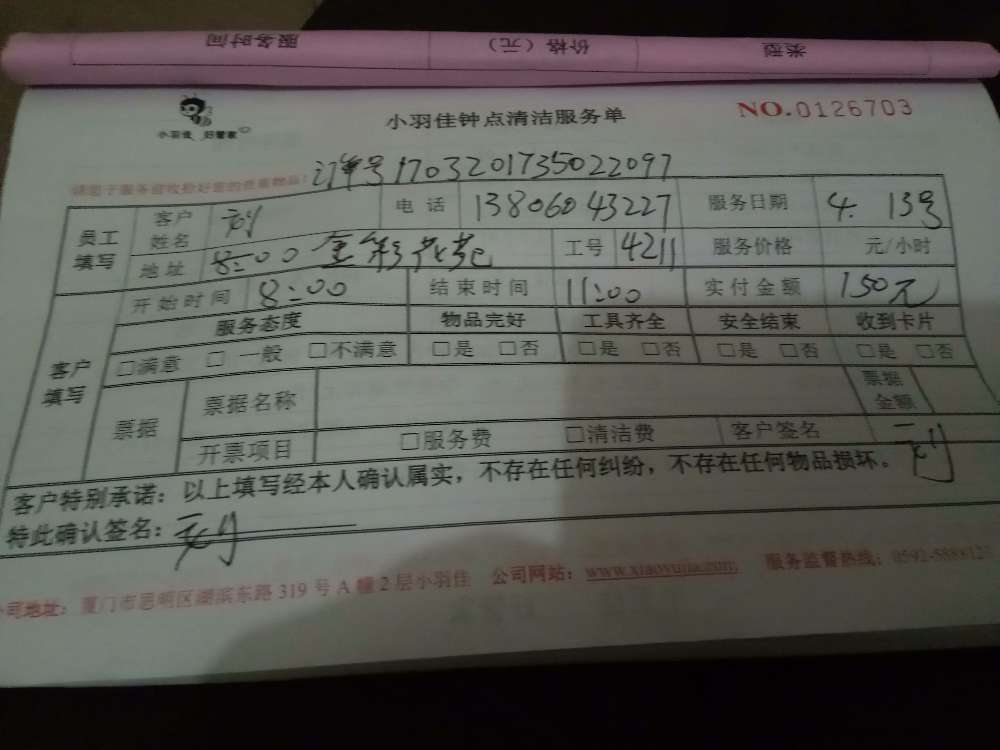 服务时间 价格（元） 类型
小羽佳 好管家
小羽佳钟点清洁服务单
NO.0126703
请您于服务前收拾好您的贵重物品：订单号1703201735022097
员工填写 客户姓名 电话 13806043227 服务日期 4. 13号
地址 8:00 金 花苑 工号 4211 服务价格 元/小时
客户填写 开始时间 8:00 结束时间 11:00 实付金额 150元
服务态度 物品完好 工具齐全 安全结束 收到卡片
□满意 □一般 □不满意 □是 □否 □是 □否 □是 □否 □是 □否
票据 票据名称 票据金额
开票项目 □服务费 □清洁费 客户签名
客户特别承诺：以上填写经本人确认属实，不存在任何纠纷，不存在任何物品损坏。
特此确认签名：
公司地址：厦门市思明区湖滨东路319号A幢2层小羽佳 公司网站：www.xiaoyujia.com 服务监督热线：